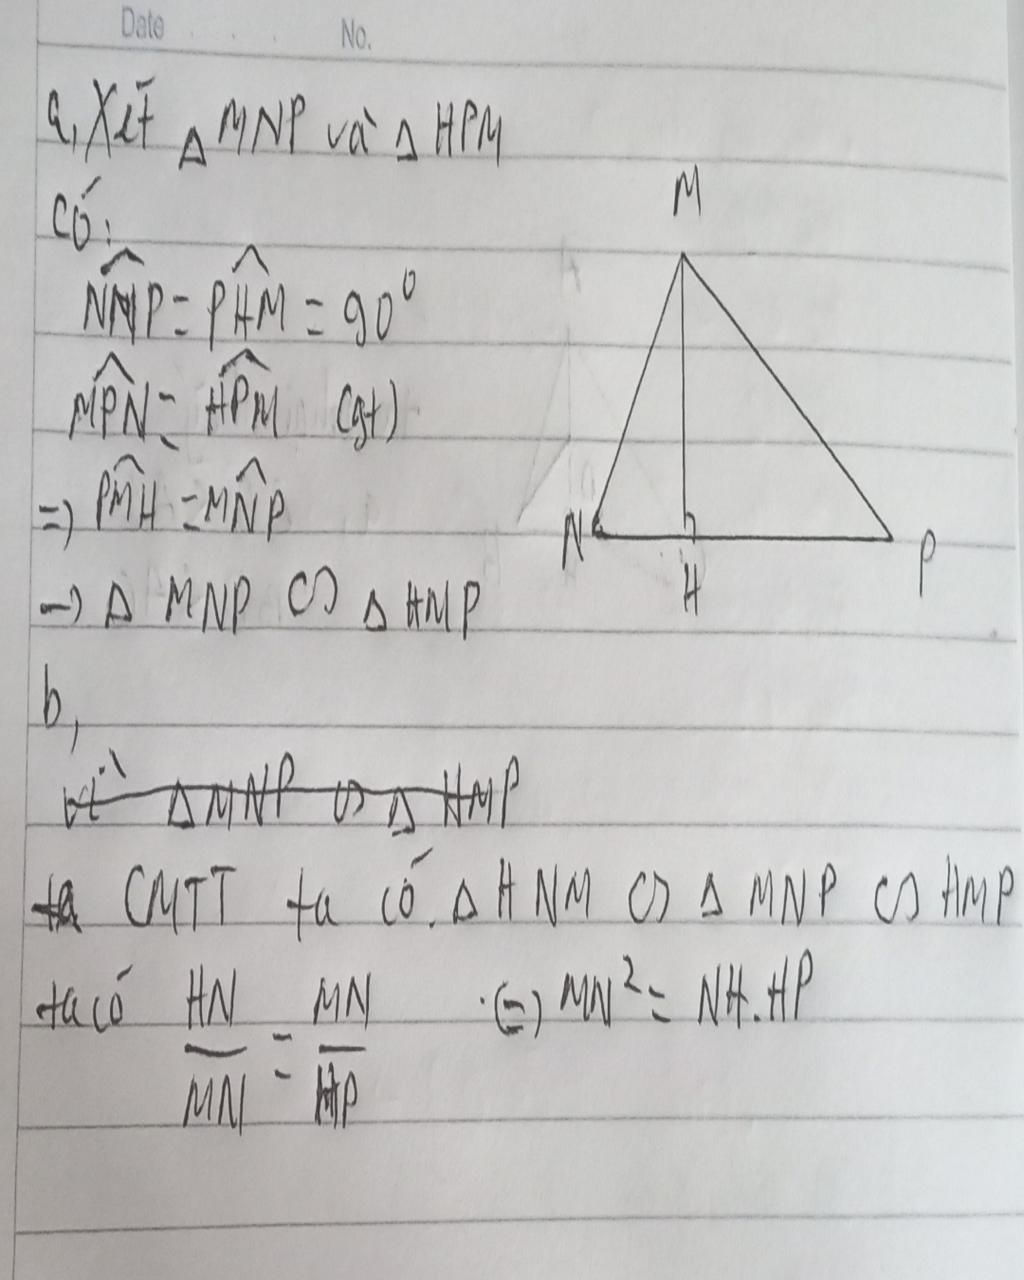 Date No.
a, Xét △ MNP và △ HPM
có:
M
NMP = PHM = 90⁰
MPN = HPM (gt)
=) PMH = MNP
N
H
P
-) △ MNP ∽ △ HMP
b,
vì △ MNP ∽ △ HMP
ta CMTT ta có. △ HNM ∽ △ MNP ∽ HMP
ta có HN/MN = MN/HP (=) MN² = NH.HP